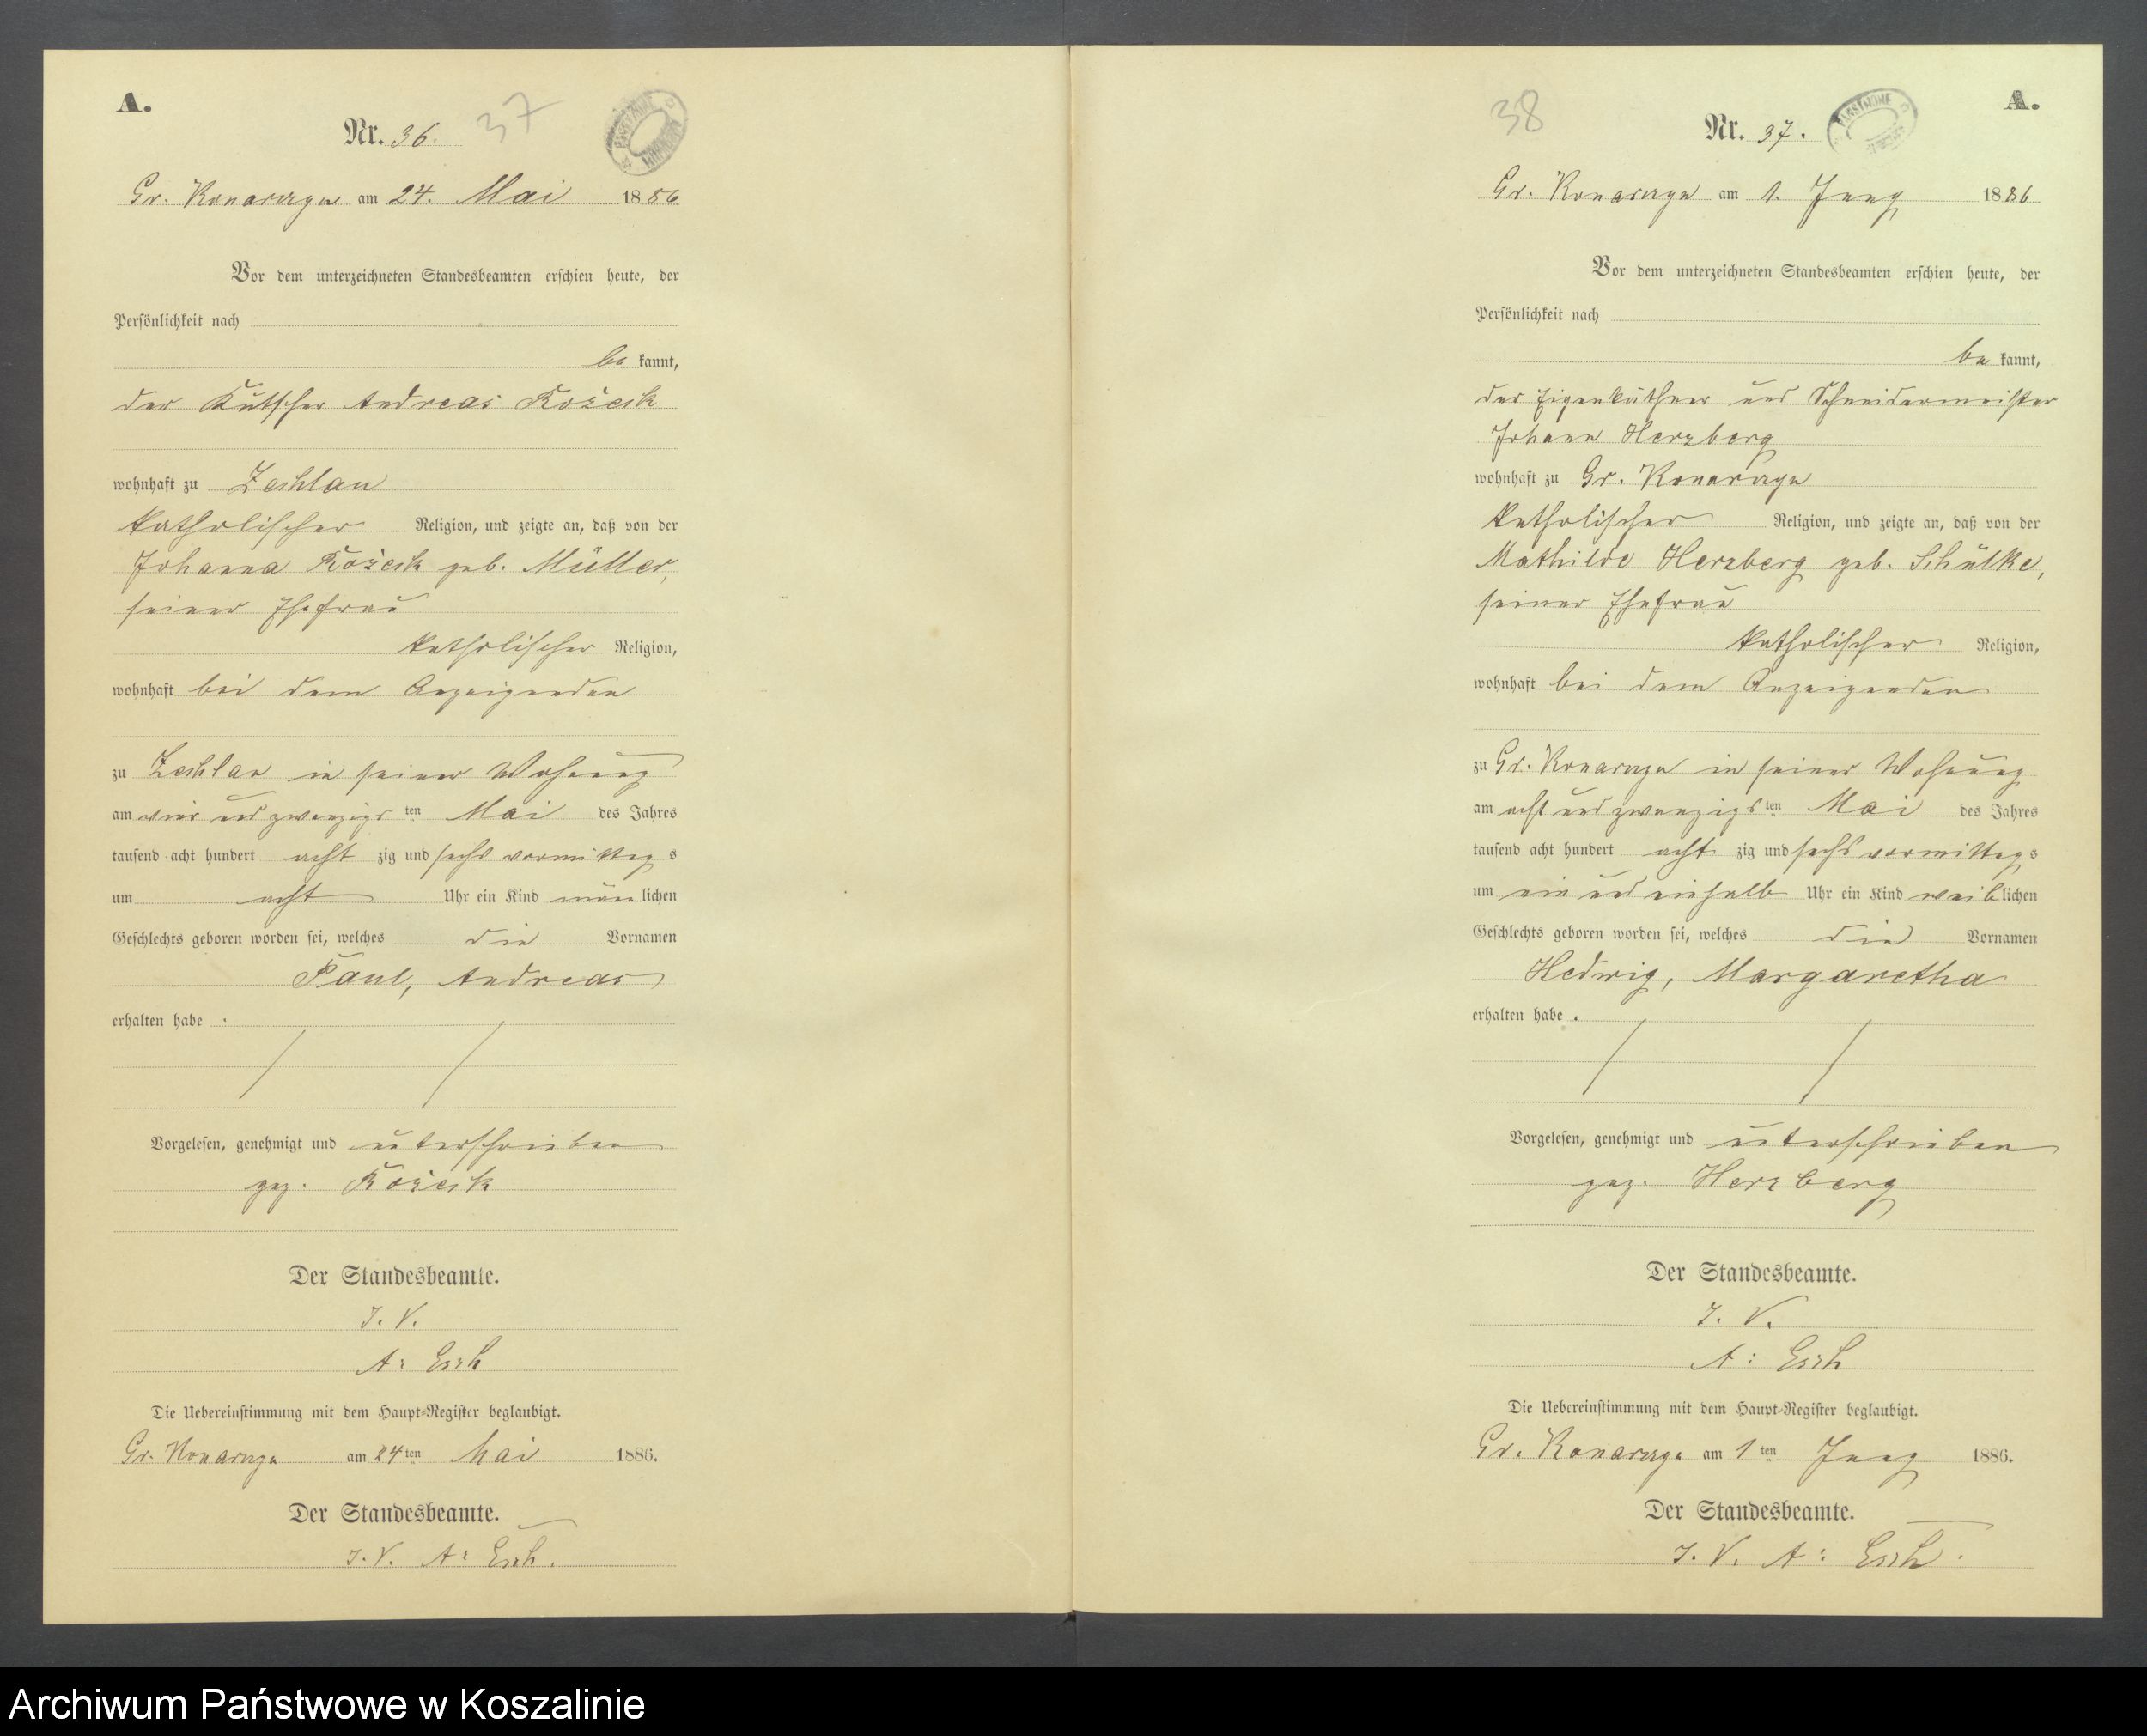 A.
Nr. 36.
37
Gr. Konarczyn am 24. Mai 1886
Vor dem unterzeichneten Standesbeamten erschien heute, der
Persönlichkeit nach
be kannt,
der Kutscher Andreas
wohnhaft zu Zechlau
katholischer Religion, und zeigte an, daß von der
Johanna geb. Müller,
seiner Ehefrau
katholischer Religion,
wohnhaft bei dem Anzeigenden
zu Zechlau in seiner Wohnung
am vier und zwanzigsten Mai des Jahres
tausend acht hundert acht zig und sechs vormittags
um acht Uhr ein Kind männlichen
Geschlechts geboren worden sei, welches die Vornamen
Paul, Andreas
erhalten habe .
Vorgelesen, genehmigt und unterschrieben
gez.
Der Standesbeamte.
I. V.
A: Esch
Die Uebereinstimmung mit dem Haupt-Register beglaubigt.
Gr. Konarczyn am 24ten Mai 1886.
Der Standesbeamte.
I. V. A: Esch.
38
A.
Nr. 37.
Gr. Konarczyn am 1. Juny 1886
Vor dem unterzeichneten Standesbeamten erschien heute, der
Persönlichkeit nach
be kannt,
der Eigenkäthner und Schneidermeister
Johann Herzberg
wohnhaft zu Gr. Konarczyn
katholischer Religion, und zeigte an, daß von der
Mathilde Herzberg geb. Schülke,
seiner Ehefrau
katholischer Religion,
wohnhaft bei dem Anzeigenden
zu Gr. Konarczyn in seiner Wohnung
am acht und zwanzigsten Mai des Jahres
tausend acht hundert acht zig und sechs vormittags
um ein und einhalb Uhr ein Kind weiblichen
Geschlechts geboren worden sei, welches die Vornamen
Hedwig, Margaretha
erhalten habe .
Vorgelesen, genehmigt und unterschrieben
gez. Herzberg
Der Standesbeamte.
I. V.
A: Esch
Die Uebereinstimmung mit dem Haupt-Register beglaubigt.
Gr. Konarczyn am 1ten Juny 1886.
Der Standesbeamte.
I. V. A: Esch.
Archiwum Państwowe w Koszalinie